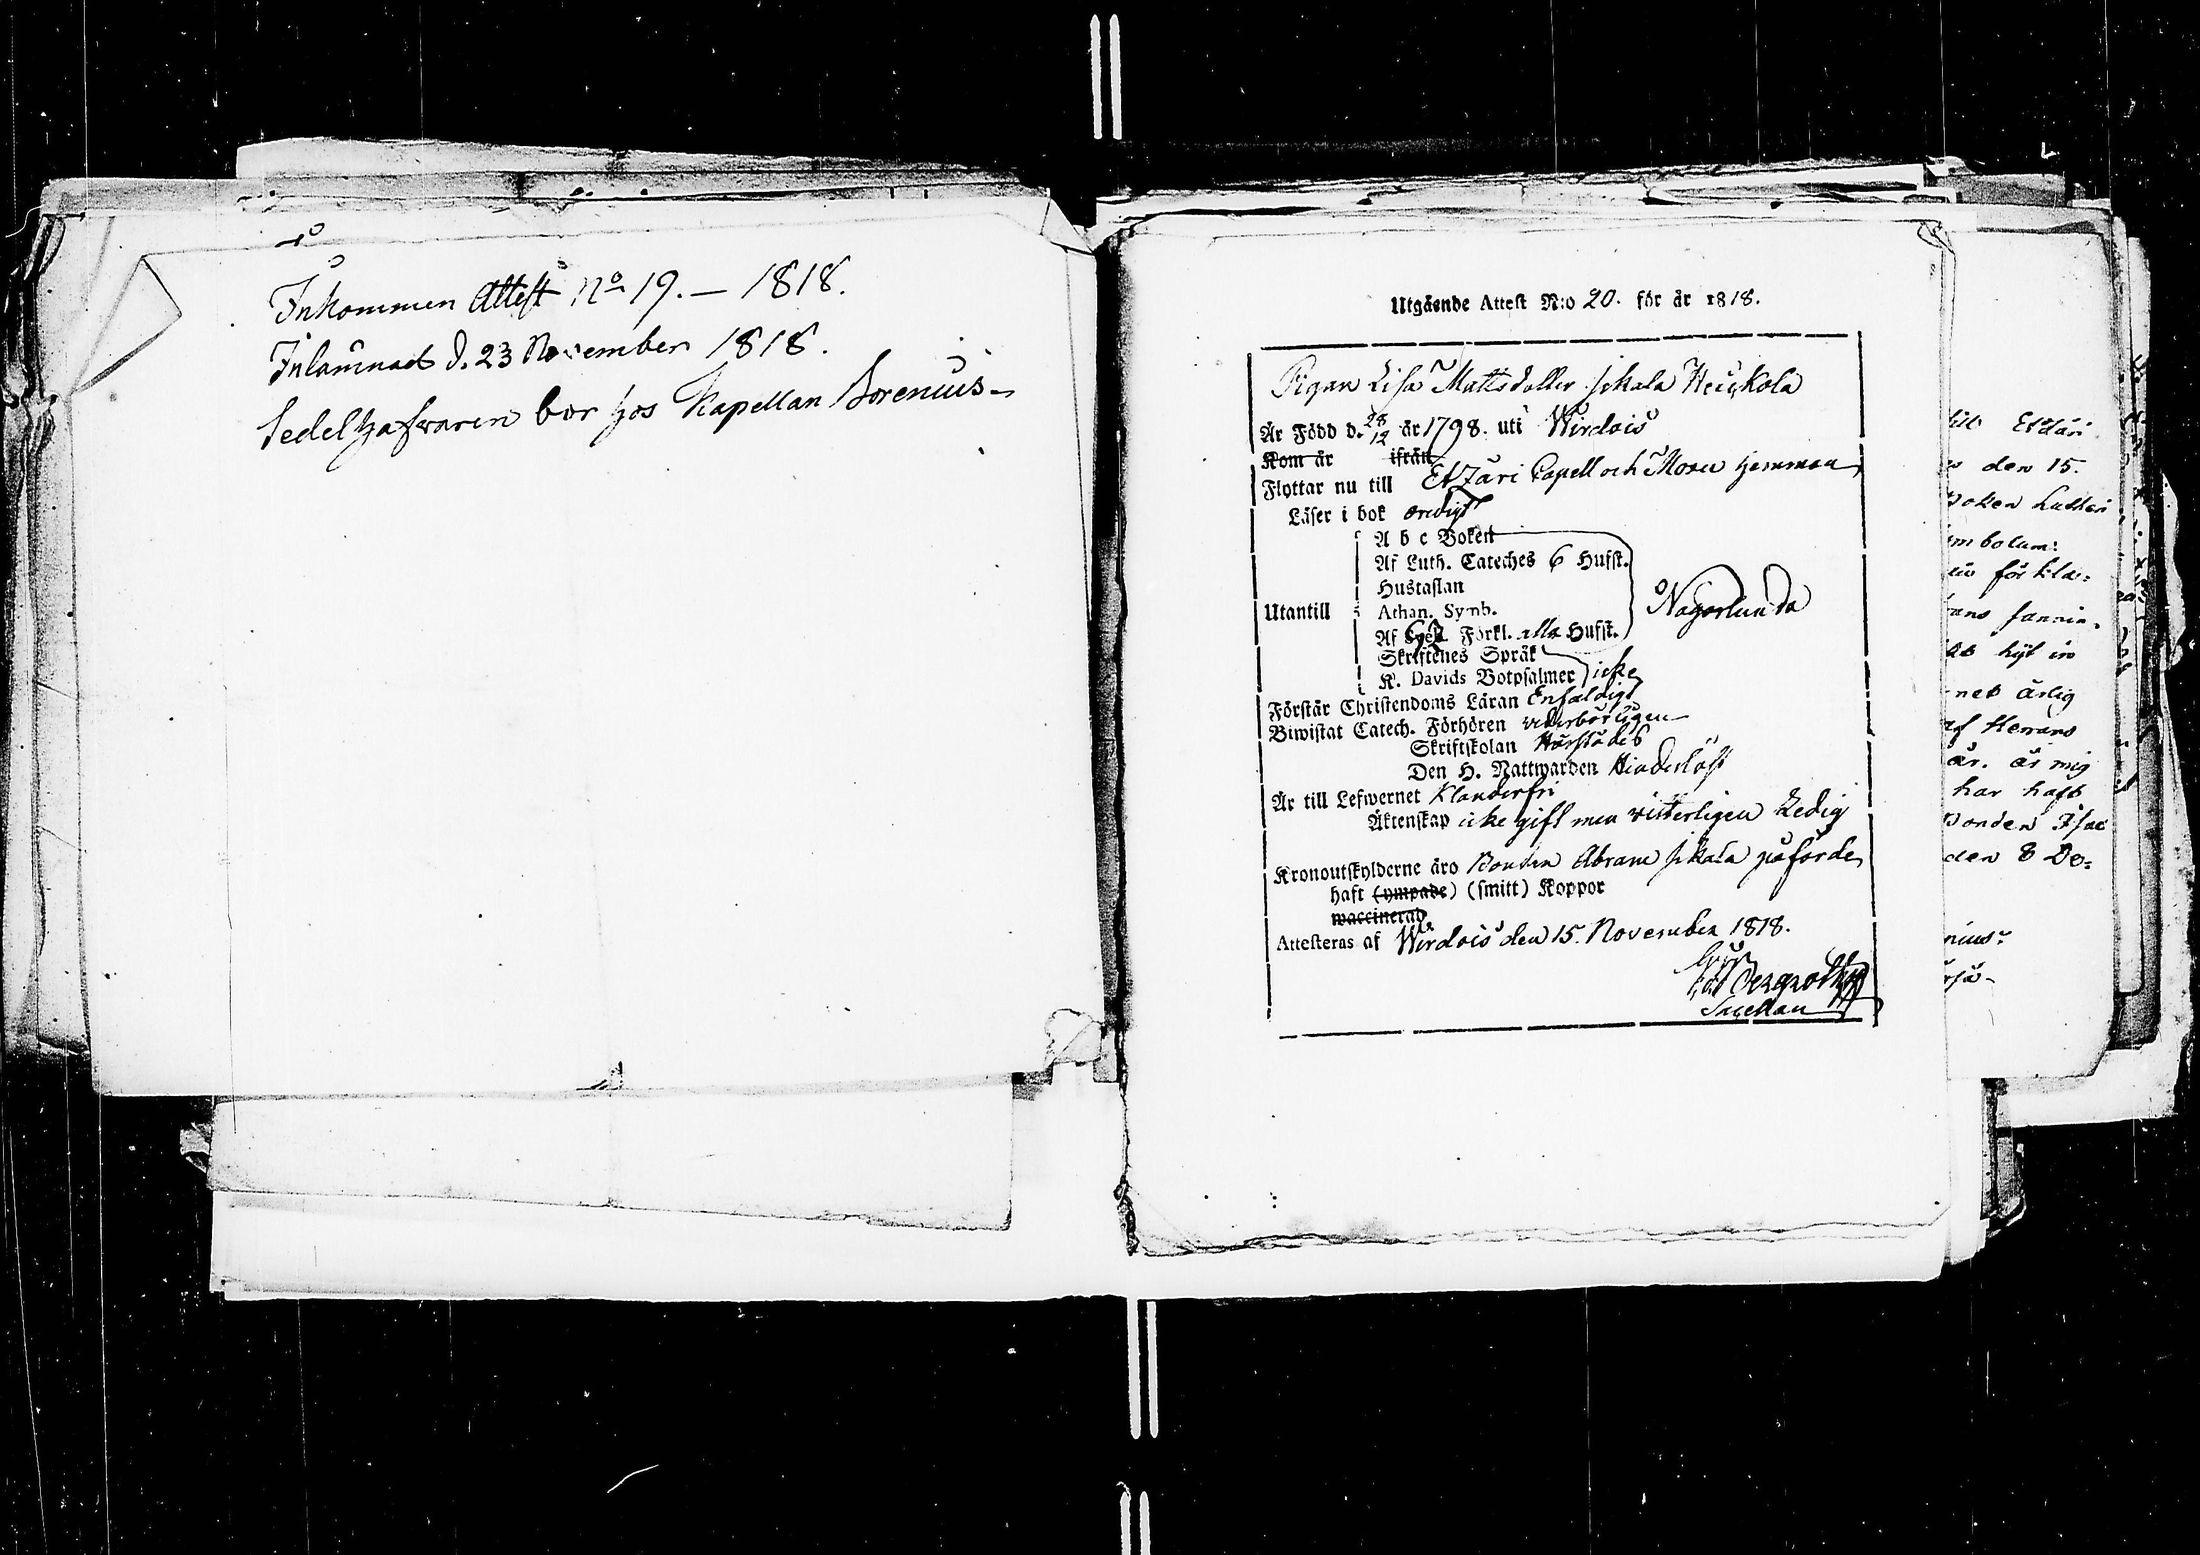 Inkommen Attest No 19. – 1818.
Inlämnad d. 23 November 1818.
Sedelhafwaren bor hos Kapellan Forenius –
Utgående Attest N:o 20. för år 1818.
Pigan Lisa Mattsdotter Jikala Heickola
Är Född d. 28/12 år 1798. uti Wirdois
Kom år ifrån
Flyttar nu till Etzäri Capell och Moxu Hemman
Läser i bok ordigt
Utantill
A b c Boken
Af Luth. Cateches 6 Hufst.
Hustaflan
Athan. Symb.
Af Förkl. alla Hufst.
Någorlunda
Skriftenes Språk
K. Davids Botpsalmer icke
Förstår Christendoms Läran Enfaldigt
Biwistat Catech. Förhören vederbörligen
Skriftskolan Härstädes
Den H. Nattwarden Hinderlöst
Är till Lefwernet Klanderfri
Äktenskap icke gift men witterligen Ledig
Kronoutskylderne äro Bonden Abram Jikala påförde
haft (ympade) (smitt) Koppor
waccinerad
Attesteras af Wirdois den 15. November 1818.
Bergroth
Sacellan
till Etsäri
den 15.
Boken Lutheri
mbolum:
för kla:
ans sannin-
hijt in
net ärlig
af Herrans
år. är mig
har haft
Bonden Isac
den 8 De:
nius: